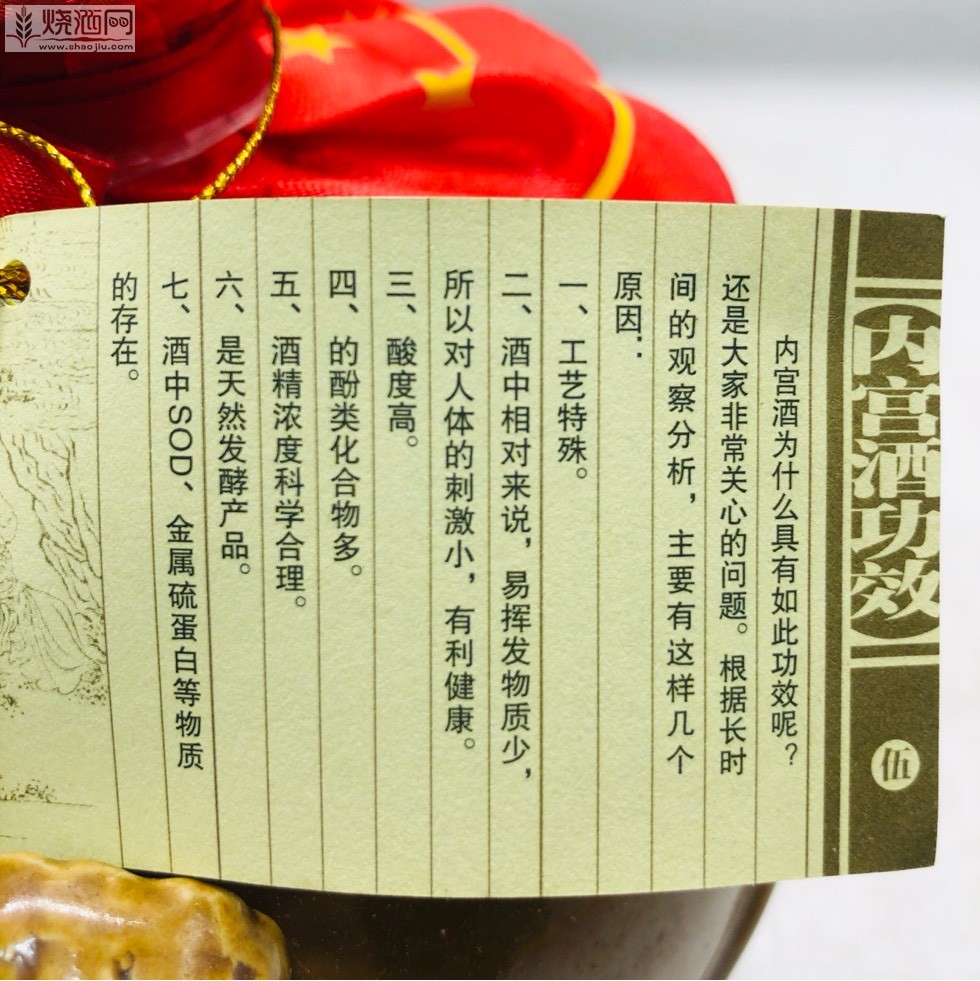 烧酒网
www.shaojiu.com
内宫酒功效
伍
内宫酒为什么具有如此功效呢？
还是大家非常关心的问题。根据长时
间的观察分析，主要有这样几个
原因：
一、工艺特殊。
二、酒中相对来说，易挥发物质少，
所以对人体的刺激小，有利健康。
三、酸度高。
四、的酚类化合物多。
五、酒精浓度科学合理。
六、是天然发酵产品。
七、酒中SOD、金属硫蛋白等物质
的存在。